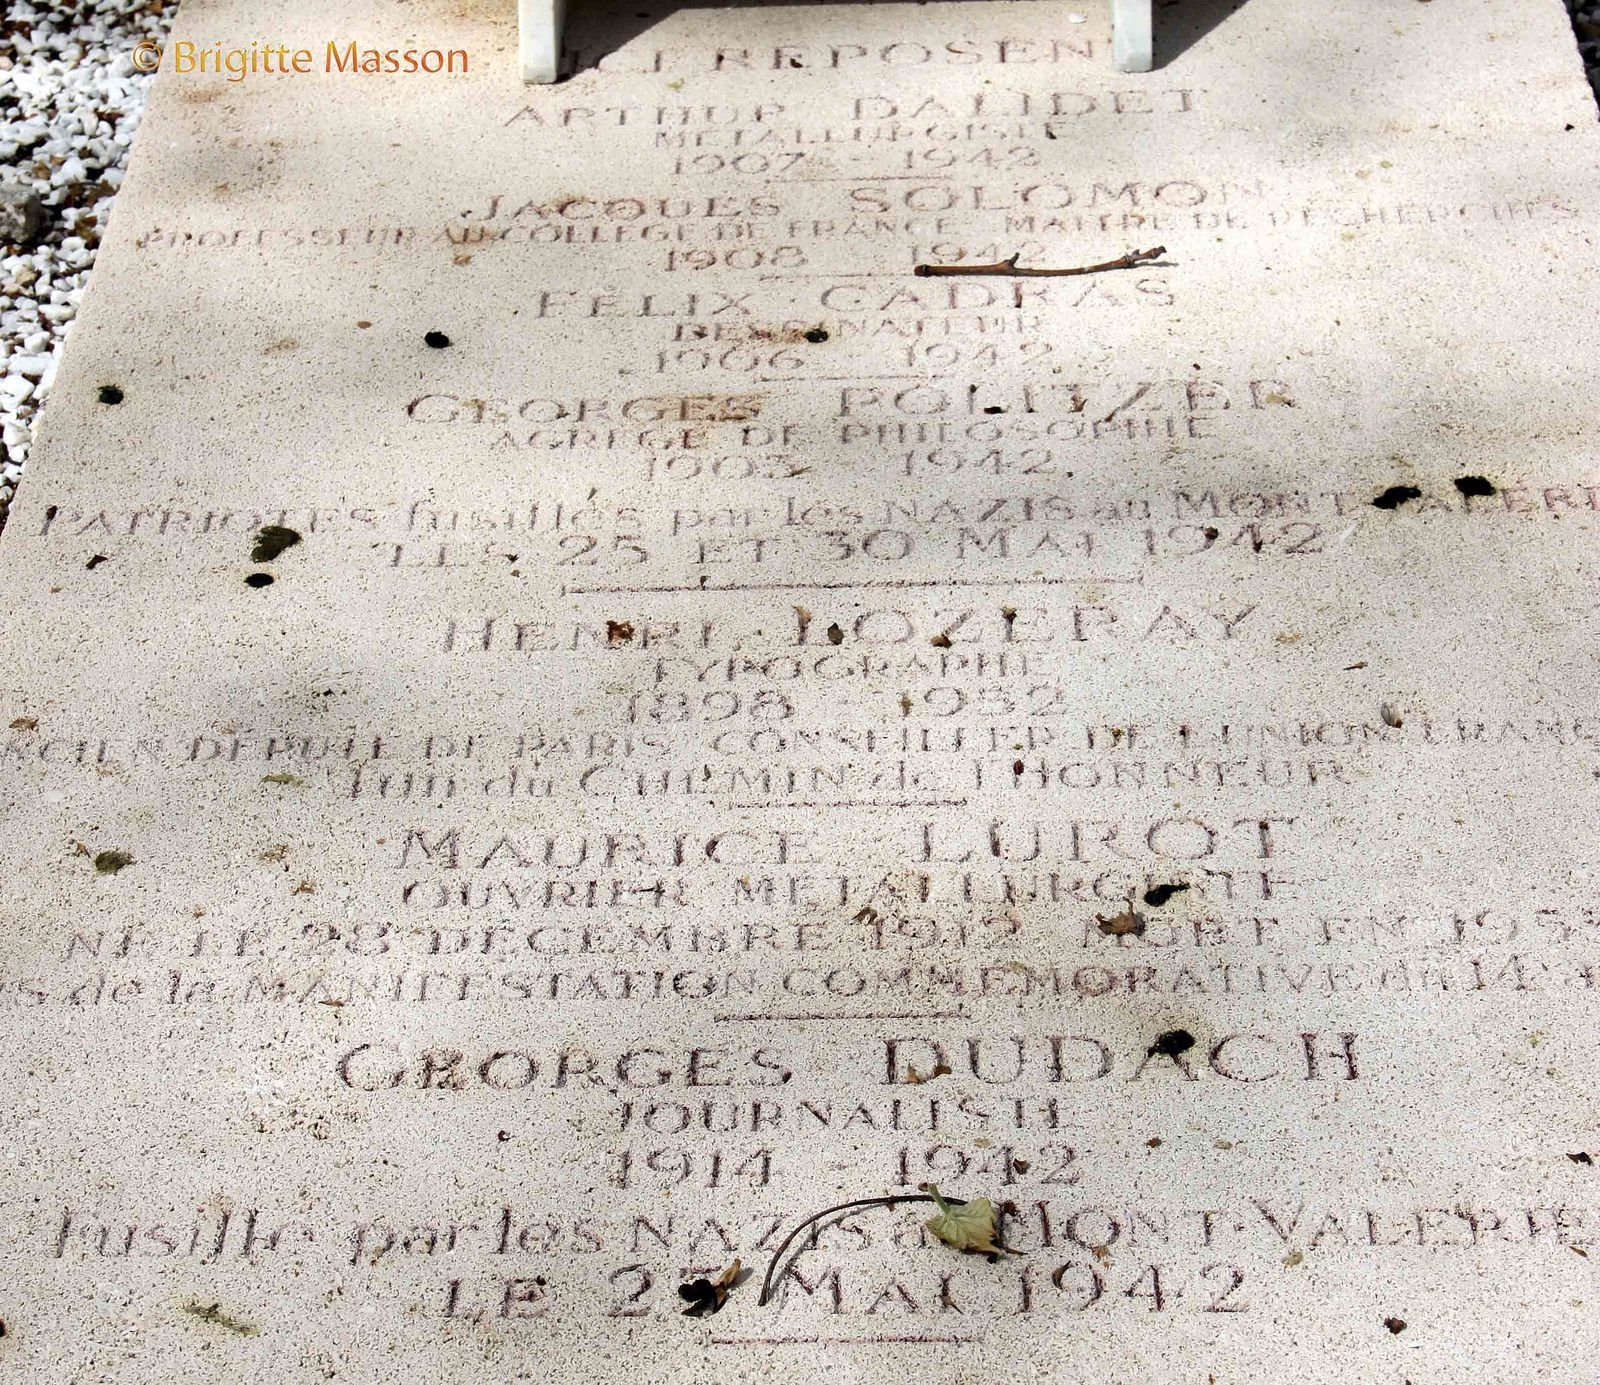 © Brigitte Masson
ICI REPOSENT
ARTHUR DALIDET
METALLURGISTE
1907 - 1942
JACQUES SOLOMON
PROFESSEUR AU COLLEGE DE FRANCE MAITRE DE RECHERCHES
1908 1942
FELIX CADRAS
DESSINATEUR
1906 - 1942
GEORGES POLITZER
AGREGE DE PHILOSOPHIE
1903 1942
PATRIOTES fusillés par les NAZIS au MONT VALERI
LES 25 ET 30 MAI 1942
HENRI LOZERAY
TYPOGRAPHE
1898 - 1952
NCIEN DÉPUTÉ DE PARIS CONSEILLER DE L'UNION FRANÇ
l'un du CHEMIN de l'HONNEUR
MAURICE LUROT
OUVRIER METALLURGISTE
NE LE 28 DECEMBRE 1912 MORT EN 195
s de la MANIFESTATION COMMEMORATIVE du 14
GEORGES DUDACH
JOURNALISTE
1914 - 1942
fusille par les NAZIS au MONT-VALERIE
LE 23 MAI 1942